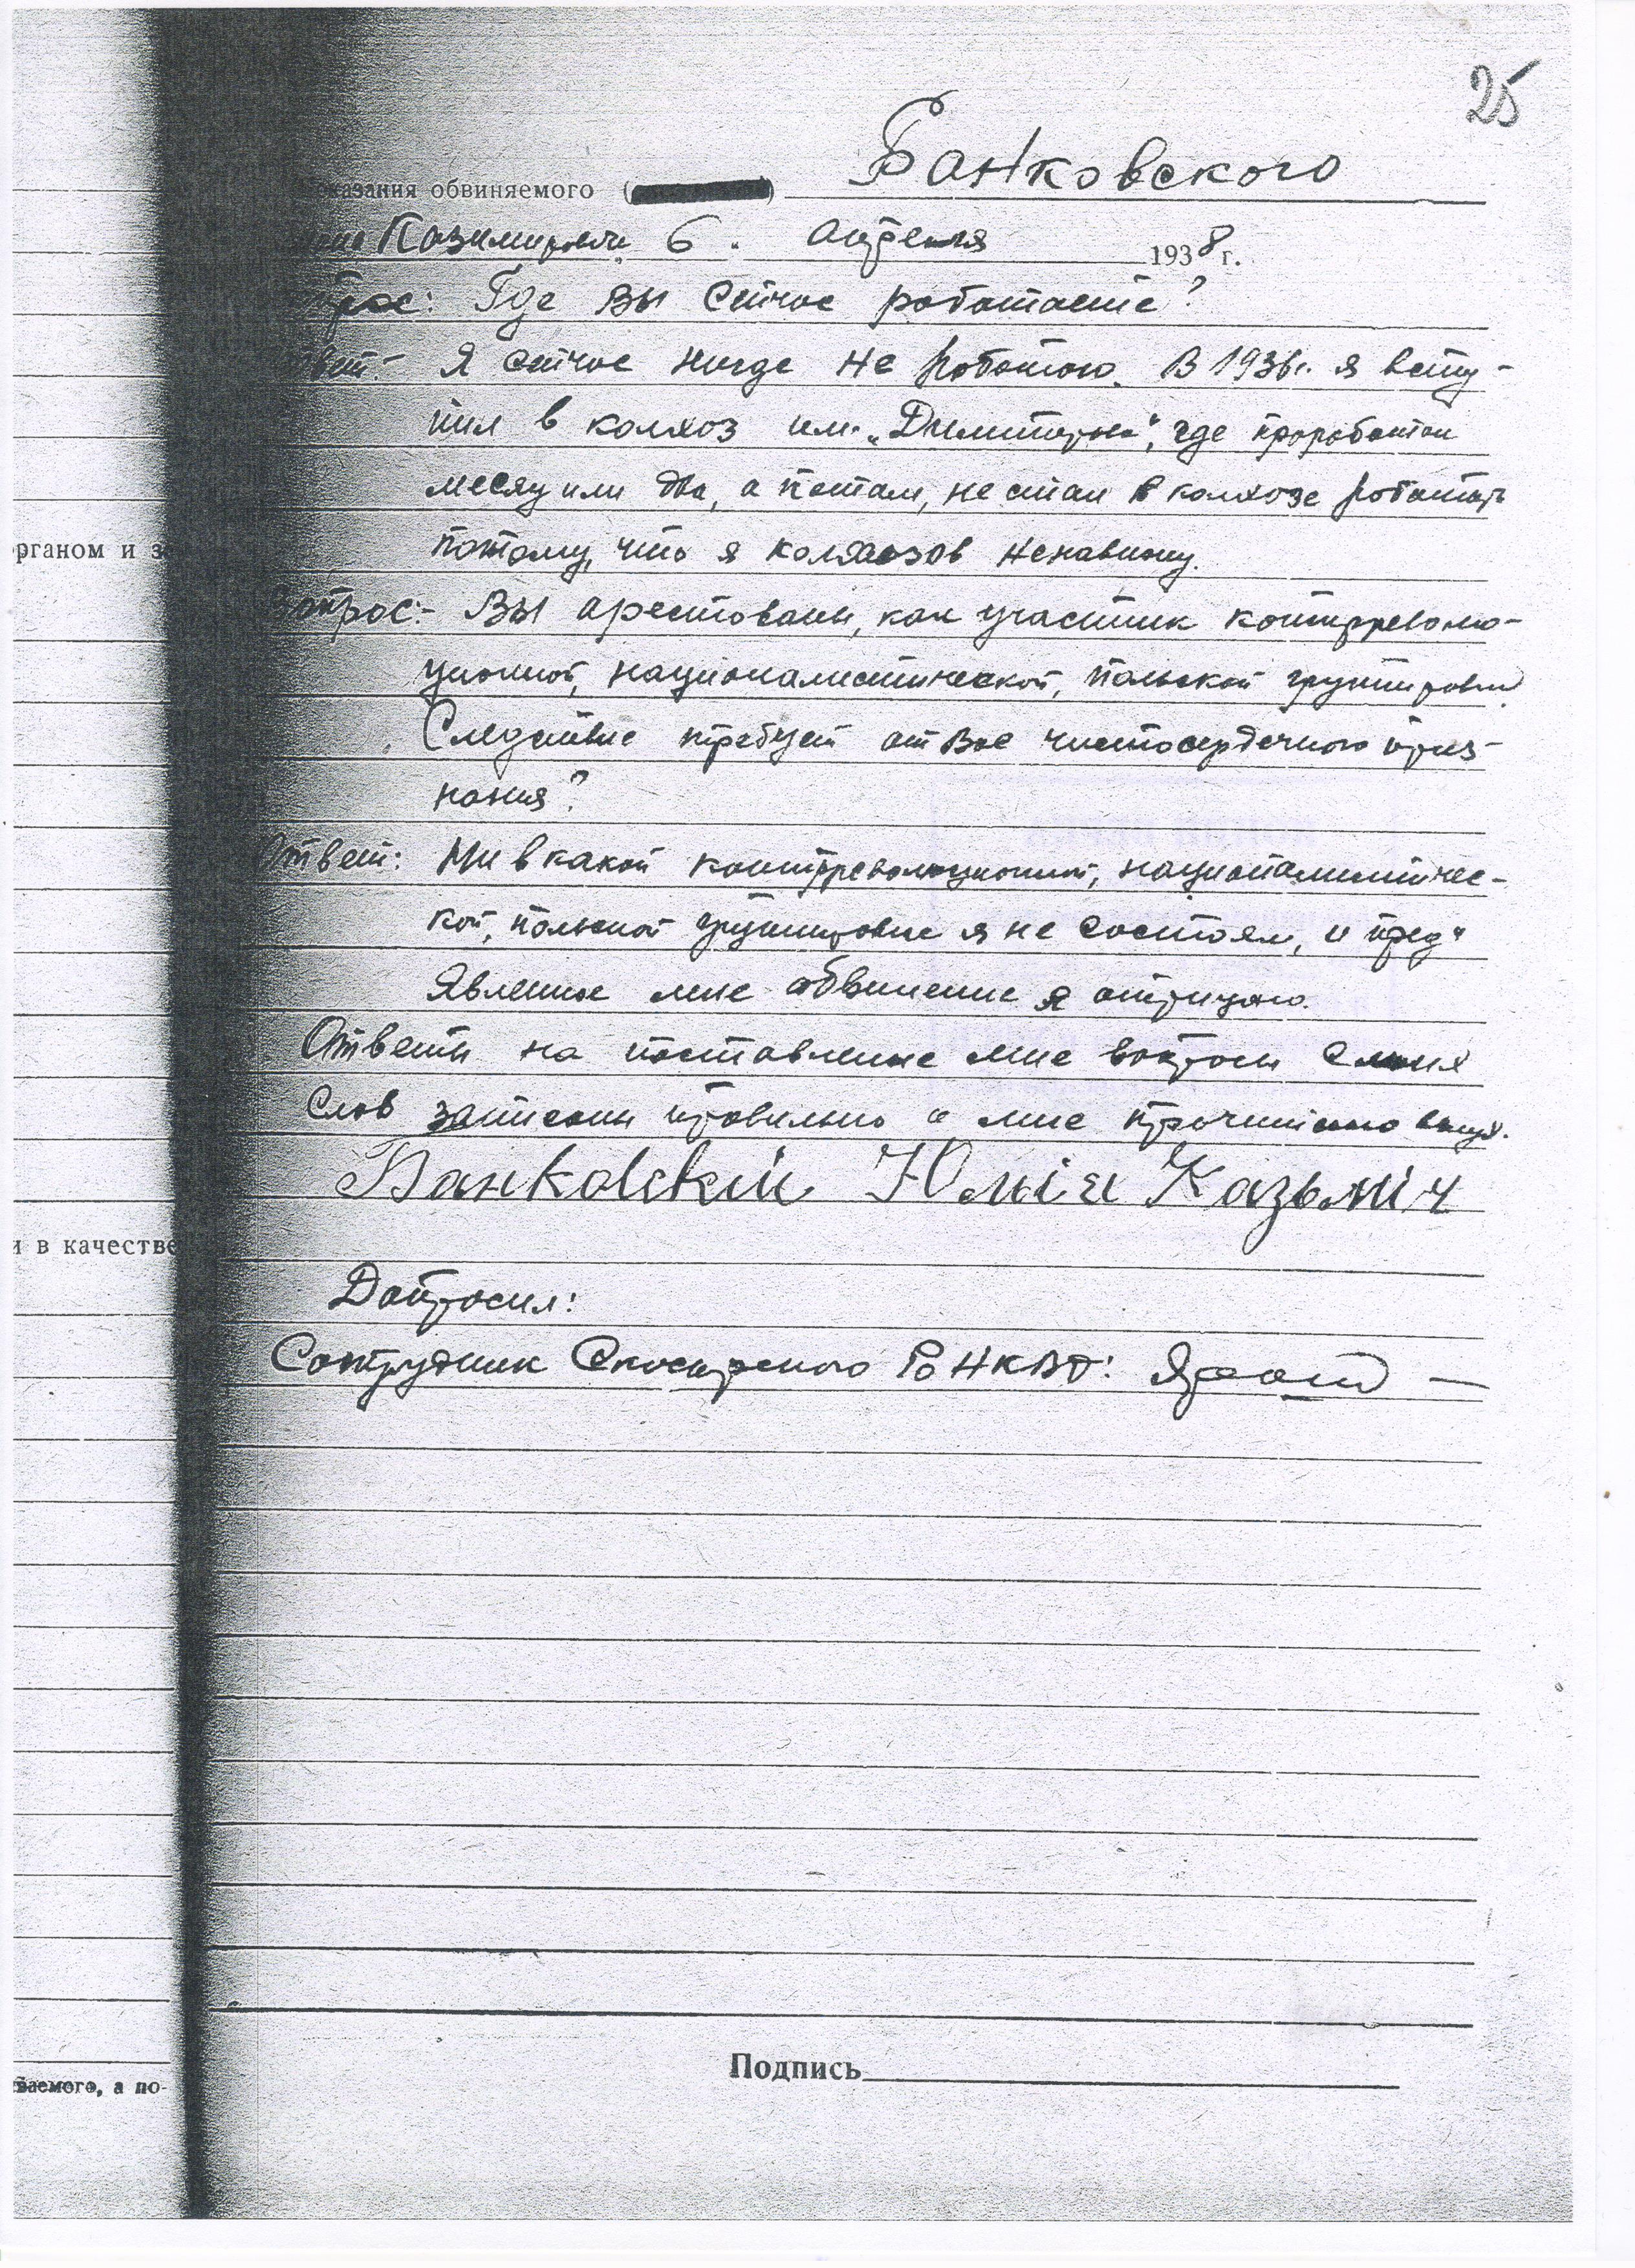 25
оказания обвиняемого ( ) Банковского
Казимировича 6. апреля 1938 г.
Где Вы сейчас работаете?
Я сейчас нигде не работаю. В 1936 г. я всту-
пил в колхоз им. „Димитрова“, где проработал
месяц или два, а потом, не стал в колхозе работать
потому, что я колхозов ненавижу.
Вопрос:- Вы арестованы, как участник контрреволю-
ционной, националистической, польской группировки.
Следствие требует от Вас чистосердечного приз-
нания?
рганом и з
Ответ: Ни в какой контрреволюционной, националистичес-
кой, польской группировке я не состоял, и пред"
явленное мне обвинение я отрицаю.
Ответы на поставленые мне вопросы с моих
слов записаны правильно и мне прочитано вслух.
Банковскій Юліи Казьміч
и в качестве
Допросил:
Сотрудник Скосырского РО НКВД:
Подпись
ваемого, а по-